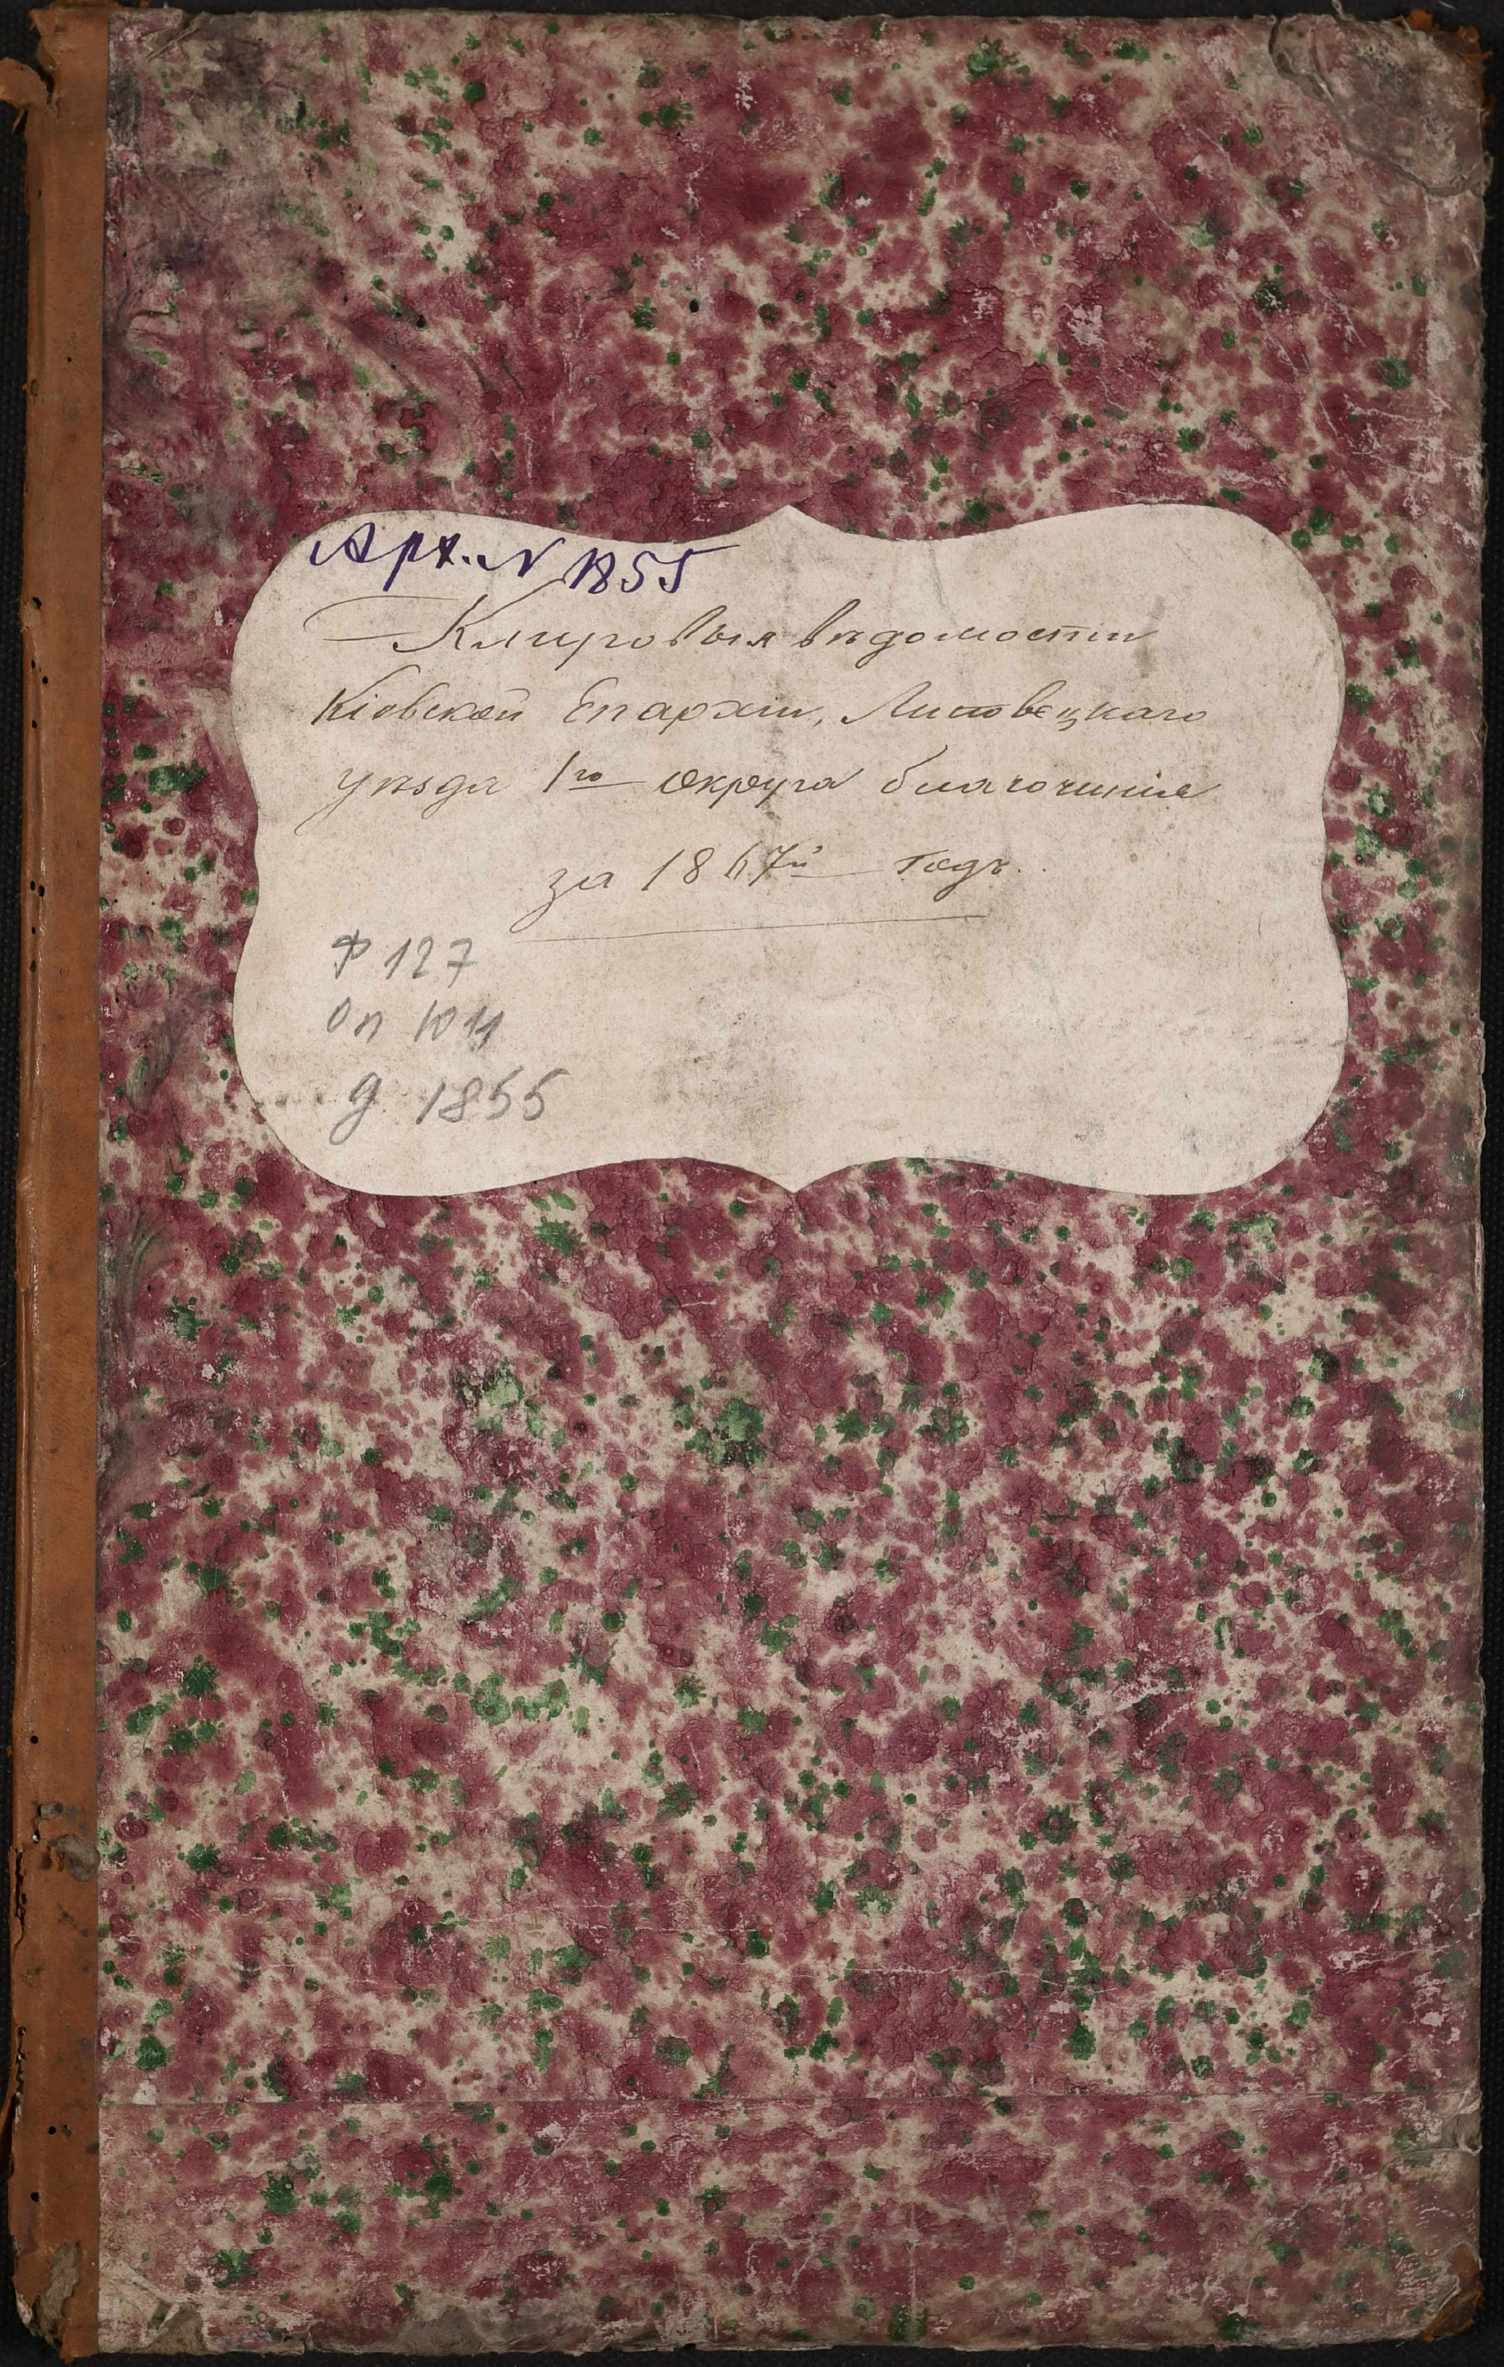 Арх. № 1855
Клировыя вѣдомости
Кіевской Епархіи, Липовецкаго
уѣзда 1го округа благочинія
за 1867й годъ.
Ф 127
Оп 1011
д 1855